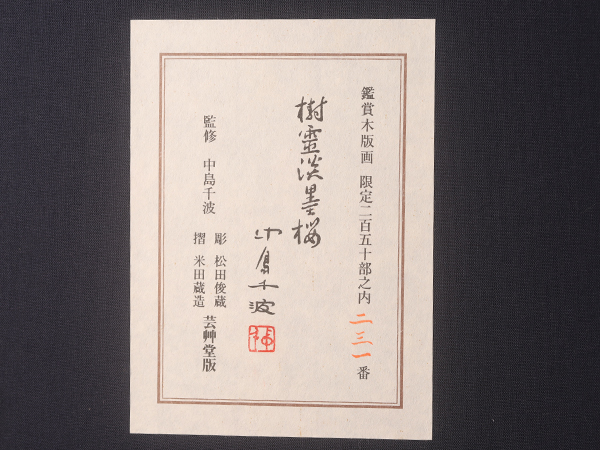 鑑賞木版画 限定二百五十部之内 二三一番
樹霊淡墨桜
中島千波
監修 中島千波
彫 松田俊蔵
摺 米田蔵造
芸艸堂版